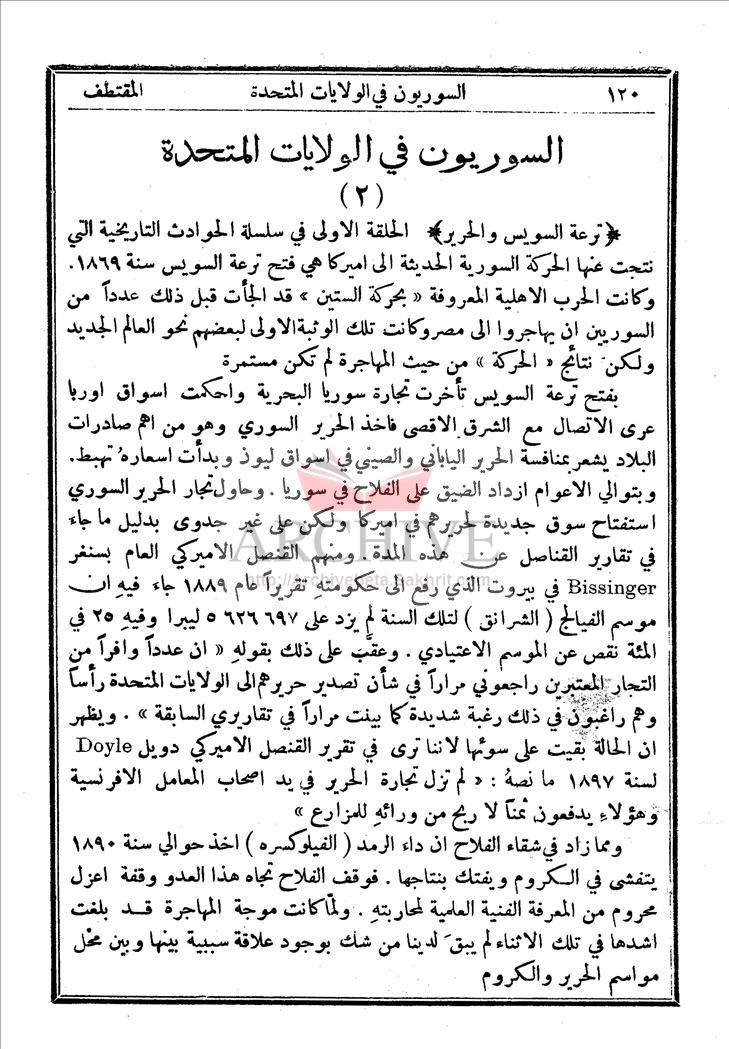 ١٢٠ السوريون في الولايات المتحدة المقتطف
السوريون في الولايات المتحدة
(٢)
﴿ ترعة السويس والحرير ﴾ الحلقة الاولى في سلسلة الحوادث التاريخية التي
نتجت عنها الحركة السورية الحديثة الى اميركا هي فتح ترعة السويس سنة ١٨٦٩.
وكانت الحرب الاهلية المعروفة « بحركة الستين » قد الجأت قبل ذلك عدداً من
السوريين ان يهاجروا الى مصر وكانت تلك الوثبة الاولى لبعضهم نحو العالم الجديد
ولكن نتائج « الحركة » من حيث المهاجرة لم تكن مستمرة
بفتح ترعة السويس تأخرت تجارة سوريا البحرية واحكمت اسواق اوربا
عرى الاتصال مع الشرق الاقصى فاخذ الحرير السوري وهو من اهم صادرات
البلاد يشعر بمنافسة الحرير الياباني والصيني في اسواق ليون وبدأت اسعارهُ تهبط.
وبتوالي الاعوام ازداد الضيق على الفلاح في سوريا . وحاول تجار الحرير السوري
استفتاح سوق جديدة لحريرهم في اميركا ولكن على غير جدوى بدليل ما جاء
في تقارير القناصل عن هذه المدة . ومنهم القنصل الاميركي العام بسنغر
Bissinger في بيروت الذي رفع الى حكومتهِ تقريراً عام ١٨٨٩ جاء فيهِ ان
موسم الفيالج ( الشرانق ) لتلك السنة لم يزد على ٦٩٧ ٦٢٦ ٥ ليبرا وفيهِ ٢٥ في
المئة نقص عن الموسم الاعتيادي . وعقَّب على ذلك بقولهِ « ان عدداً وافراً من
التجار المعتبرين راجعوني مراراً في شأن تصدير حريرهم الى الولايات المتحدة رأساً
وهم راغبون في ذلك رغبة شديدة كما بينت مراراً في تقاريري السابقة » . ويظهر
ان الحالة بقيت على سوئها لاننا نرى في تقرير القنصل الاميركي دويل Doyle
لسنة ١٨٩٧ ما نصهُ : « لم تزل تجارة الحرير في يد اصحاب المعامل الافرنسية
وهؤلاءِ يدفعون ثمناً لا ربح من ورائهِ للمزارع »
ومما زاد في شقاء الفلاح ان داء الرمد ( الفيلوكسره ) اخذ حوالي سنة ١٨٩٠
يتفشى في الكروم ويفتك بنتاجها . فوقف الفلاح تجاه هذا العدو وقفة اعزل
محروم من المعرفة الفنية العلمية لمحاربتهِ . ولمّا كانت موجة المهاجرة قد بلغت
اشدها في تلك الاثناء لم يبقَ لدينا من شك بوجود علاقة سببية بينها وبين محْل
مواسم الحرير والكروم
ARCHIVE
http://Archivebeta.Sakhrit.com